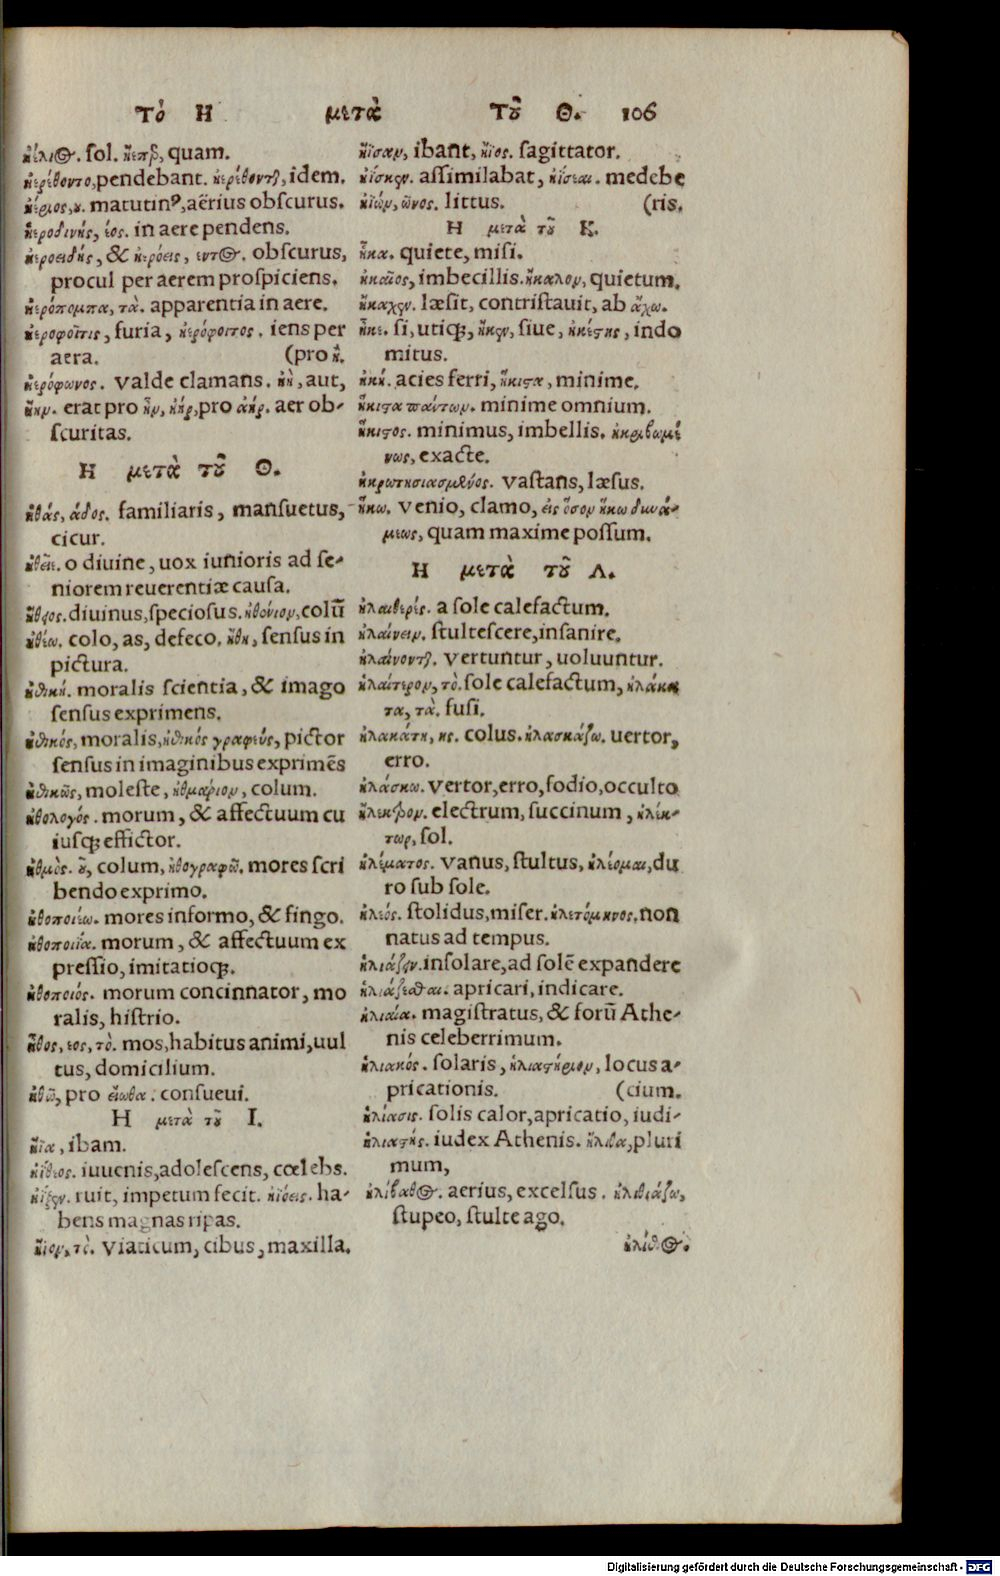 Τὸ Η μετὰ Τοῦ Θ. 106
ἠέλιος. sol. ἤεπερ, quam.
ἠερέθοντο, pendebant. ἠερέθονται, idem.
ἠέριος, ου. matutinꝰ, aërius obscurus.
ἠεροδινής, έος. in aere pendens.
ἠεροειδής, & ἠερόεις, εντος. obscurus,
procul per aerem prospiciens.
ἠερόπομπα, τὰ. apparentia in aere.
ἠεροφοῖτις, furia, ἠερόφοιτος. iens per
aera. (pro ἤ.
ἠερόφωνος. valde clamans. ἠὴ, aut,
ἤην. erat pro ἦν, ἠήρ, pro ἀήρ. aer ob-
scuritas.
Η μετὰ τοῦ Θ.
ἠθάς, άδος. familiaris, mansuetus,
cicur.
ἠθεῖε. o diuine, uox iunioris ad se-
niorem reuerentiæ causa.
ἤθεος. diuinus, speciosus. ἠθόνιον, colū
ἠθέω. colo, as, defeco. ἤθη, sensus in
pictura.
ἠθική. moralis scientia, & imago
sensus exprimens.
ἠθικός, moralis, ἠθικός γραφεύς, pictor
sensus in imaginibus exprimēs
ἠθικῶς, moleste, ἠθμάριον, colum.
ἠθολογός. morum, & affectuum cu
iusqꝫ effictor.
ἠθμὸς. οῦ, colum, ἠθογραφῶ. mores scri
bendo exprimo.
ἠθοποιέω. mores informo, & fingo.
ἠθοποιΐα. morum, & affectuum ex
pressio, imitatioqꝫ.
ἠθοποιός. morum concinnator, mo
ralis, histrio.
ἦθος, εος, τὸ. mos, habitus animi, uul
tus, domicilium.
ἠθῶ, pro εἴωθα. consueui.
Η μετὰ τοῦ Ι.
ἤϊα, ibam.
ἠΐθεος. iuuenis, adolescens, cœlebs.
ἤϊξεν. ruit, impetum fecit. ἠϊόεις. ha-
bens magnas ripas.
ἤϊον, τὸ. viaticum, cibus, maxilla.
ἤϊσαν, ibant, ἤϊος. sagittator.
ἠΐσκεν. assimilabat, ἠΐσεαι. medebe
ἠϊών, ῶνος. littus. (ris.
Η μετὰ τοῦ Κ.
ἧκα. quiete, misi.
ἠκαῖος, imbecillis. ἤκαλον, quietum.
ἤκαχεν. læsit, contristauit, ab ἄχω.
ἧκε. si, utiqꝫ, ἧκεν, siue, ἠκέστης, indo
mitus.
ἠκή. acies ferri, ἥκιστα, minime.
ἥκιστα πάντων. minime omnium.
ἥκιστος. minimus, imbellis. ἠκριβωμέ
νως, exacte.
ἠκρωτησιασμένος. vastans, læsus.
ἥκω. venio, clamo, εἰς ὅσον ἥκω δυνά-
μεως, quam maxime possum.
Η μετὰ τοῦ Λ.
ἡλιαθερές. a sole calefactum.
ἠλαίνειν. stultescere, insanire.
ἠλαίνονται. vertuntur, uoluuntur.
ἠλαίτερον, τὸ. sole calefactum, ἠλάκα
τα, τὰ. fusi.
ἠλακάτη, ης. colus. ἠλασκάζω. uertor,
erro.
ἠλάσκω. vertor, erro, fodio, occulto
ἤλεκτρον. electrum, succinum, ἠλέκ-
τωρ, sol.
ἠλέματος. vanus, stultus, ἠλέομαι, du
ro sub sole.
ἠλεός. stolidus, miser. ἠλετόμηνος. non
natus ad tempus.
ἡλιάζειν. insolare, ad solē expandere
ἡλιάζεσθαι. apricari, indicare.
ἡλιαία. magistratus, & forū Athe-
nis celeberrimum.
ἡλιακός. solaris, ἡλιαστήριον, locus a-
pricationis. (cium.
ἡλίασις. solis calor, apricatio, iudi-
ἡλιαστής. iudex Athenis. ἤλιθα, pluri
mum,
ἠλίβατος. aerius, excelsus. ἠλιθιάζω,
stupeo, stulte ago.
ἠλίθιος.
Digitalisierung gefördert durch die Deutsche Forschungsgemeinschaft - DFG